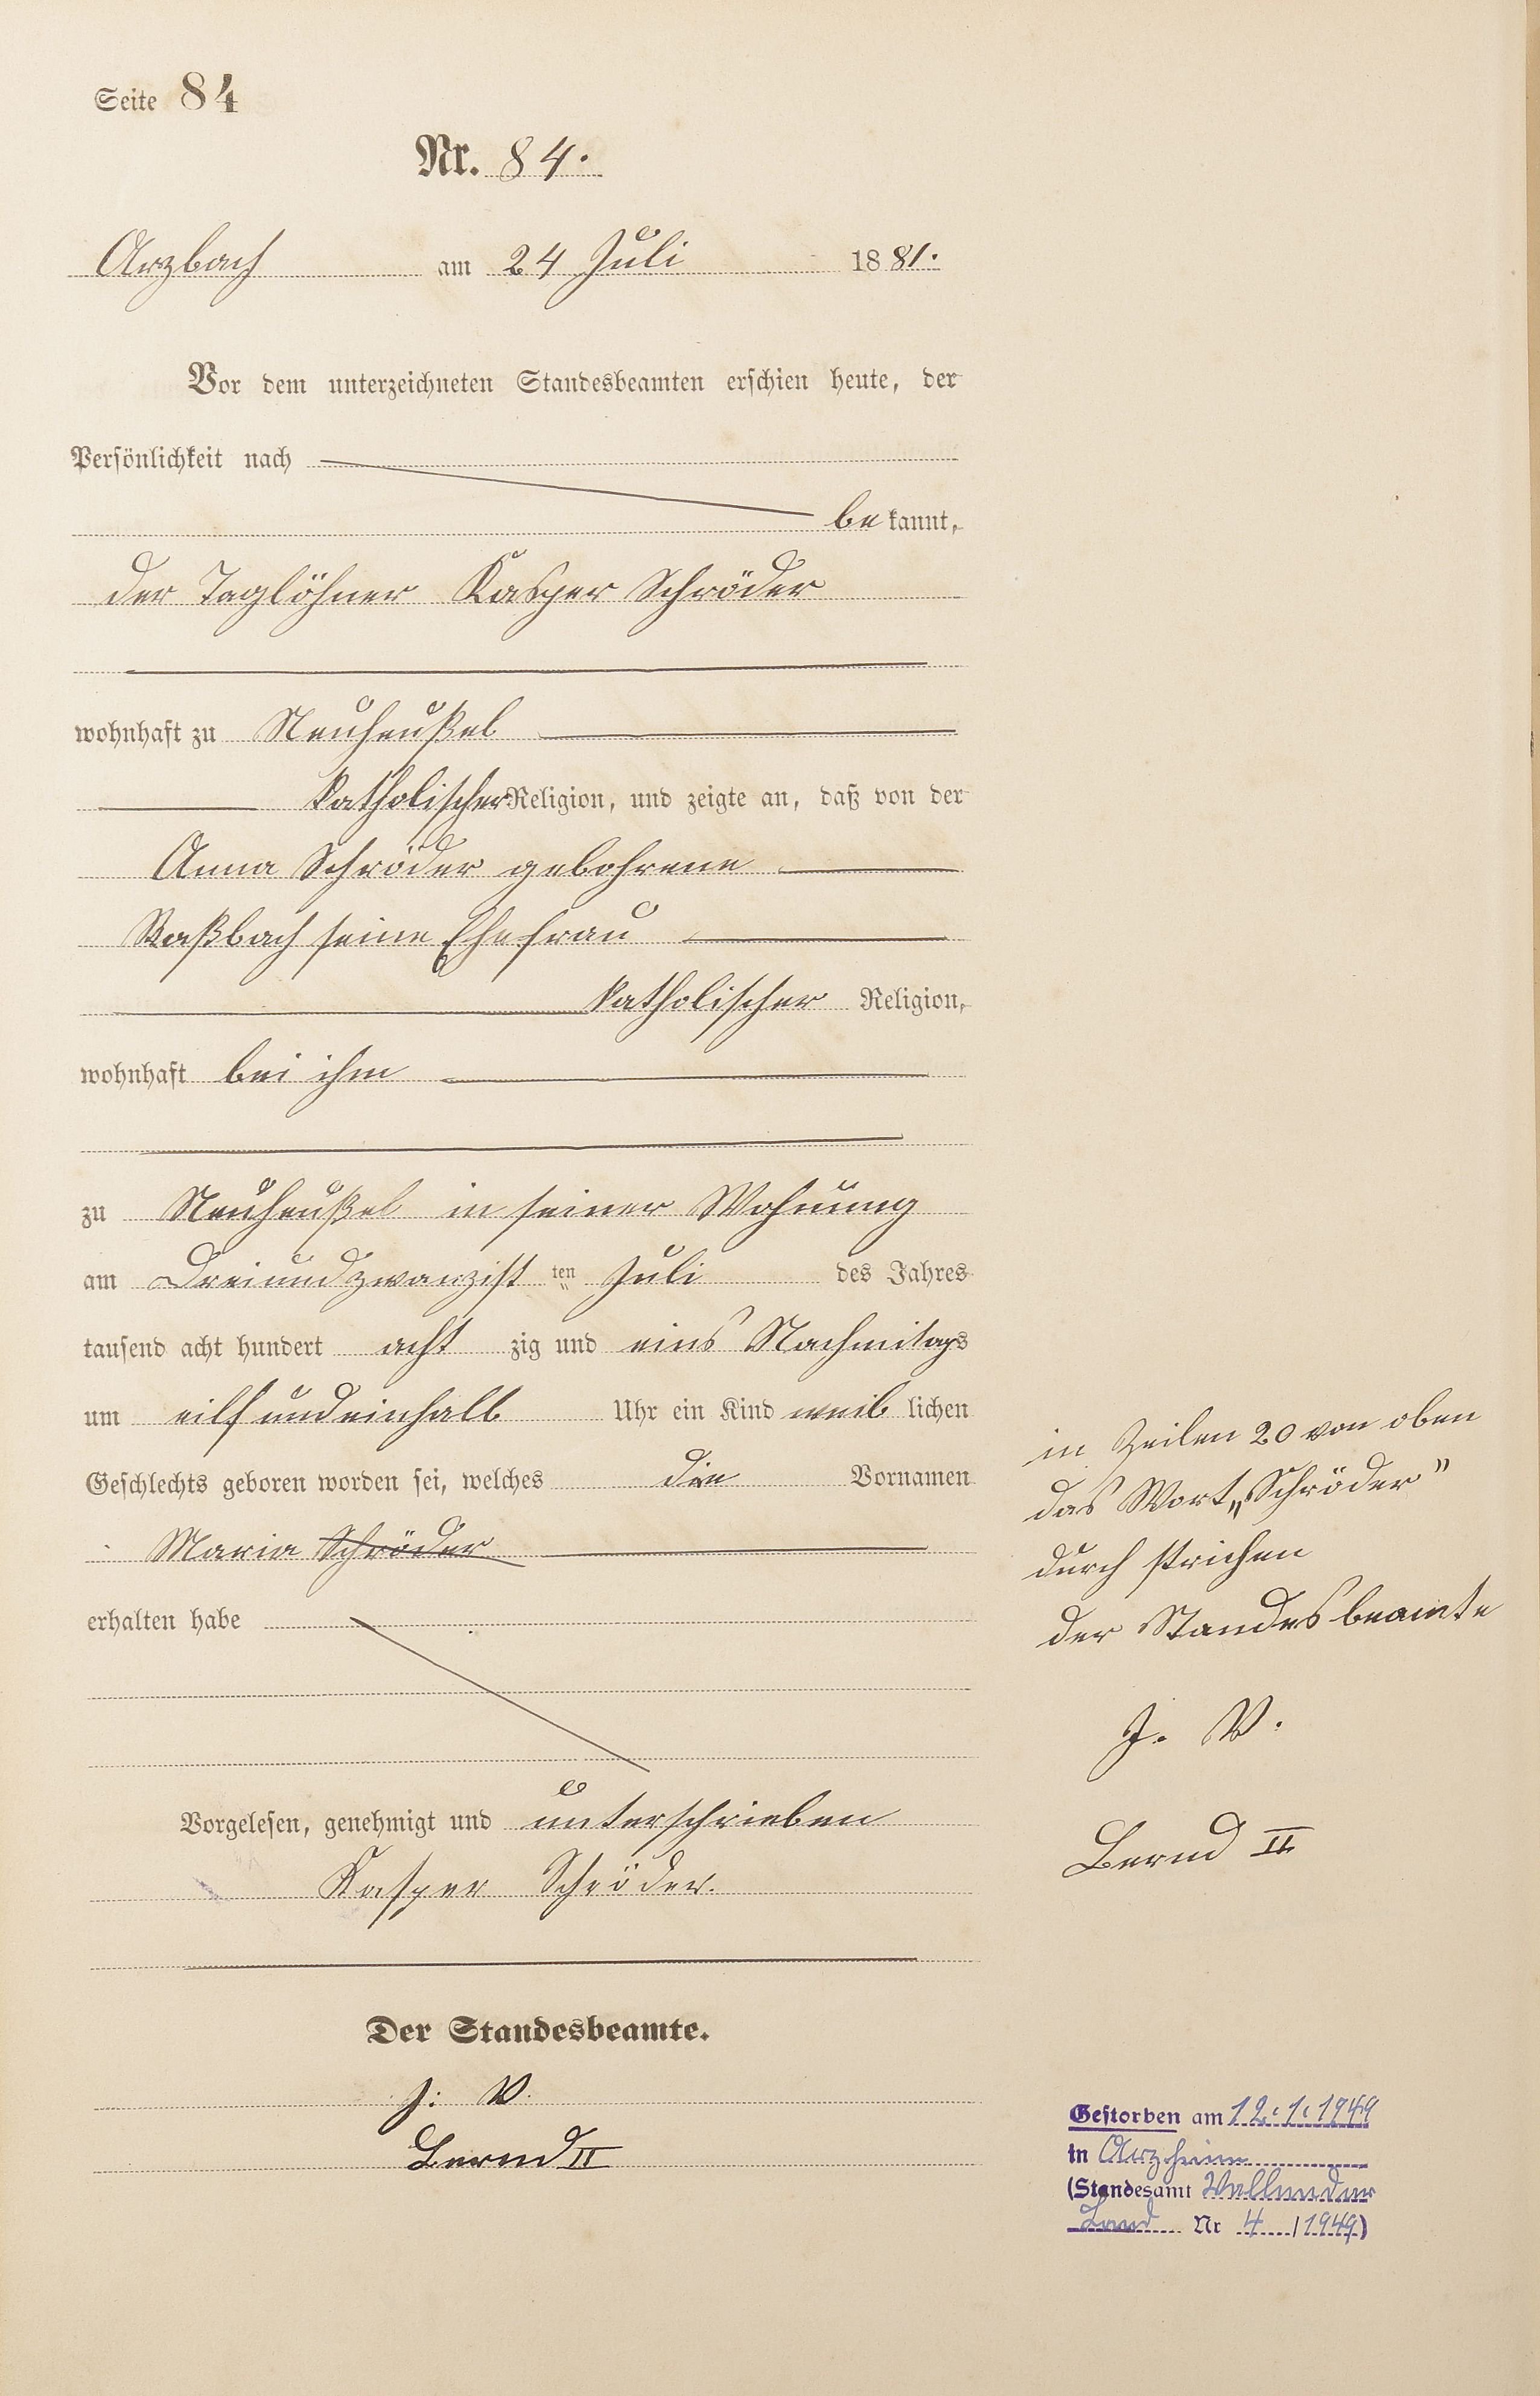 Seite 84
Nr. 84.
Arzbach am 24 Juli 1881.
Vor dem unterzeichneten Standesbeamten erschien heute, der
Persönlichkeit nach
bekannt,
der Taglöhner Kasper Schröder
wohnhaft zu Neuheußel
katholischer Religion, und zeigte an, daß von der
Anna Schröder gebohrene
seine Ehefrau
katholischer Religion,
wohnhaft bei ihm
zu Neuheußel in seiner Wohnung
am Dreiundzwanzigst ten Juli des Jahres
tausend acht hundert acht zig und eins Nachmitags
um eilf undeinhalb Uhr ein Kind weib lichen
Geschlechts geboren worden sei, welches die Vornamen
Maria Schröder
erhalten habe
Vorgelesen, genehmigt und unterschrieben
Kasper Schröder.
Der Standesbeamte.
J. V.
Bernd II
in Zeilen 20 von oben
das Wort „Schröder"
durch strichen
der Standesbeamte
J. V.
Bernd II
Gestorben am 12.1.1949
in Arzheim
(Standesamt Vallendar
Land Nr 4 / 1949)